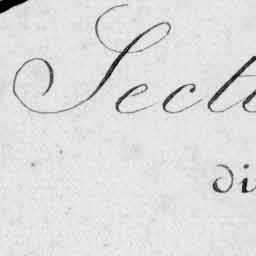 Secti
di